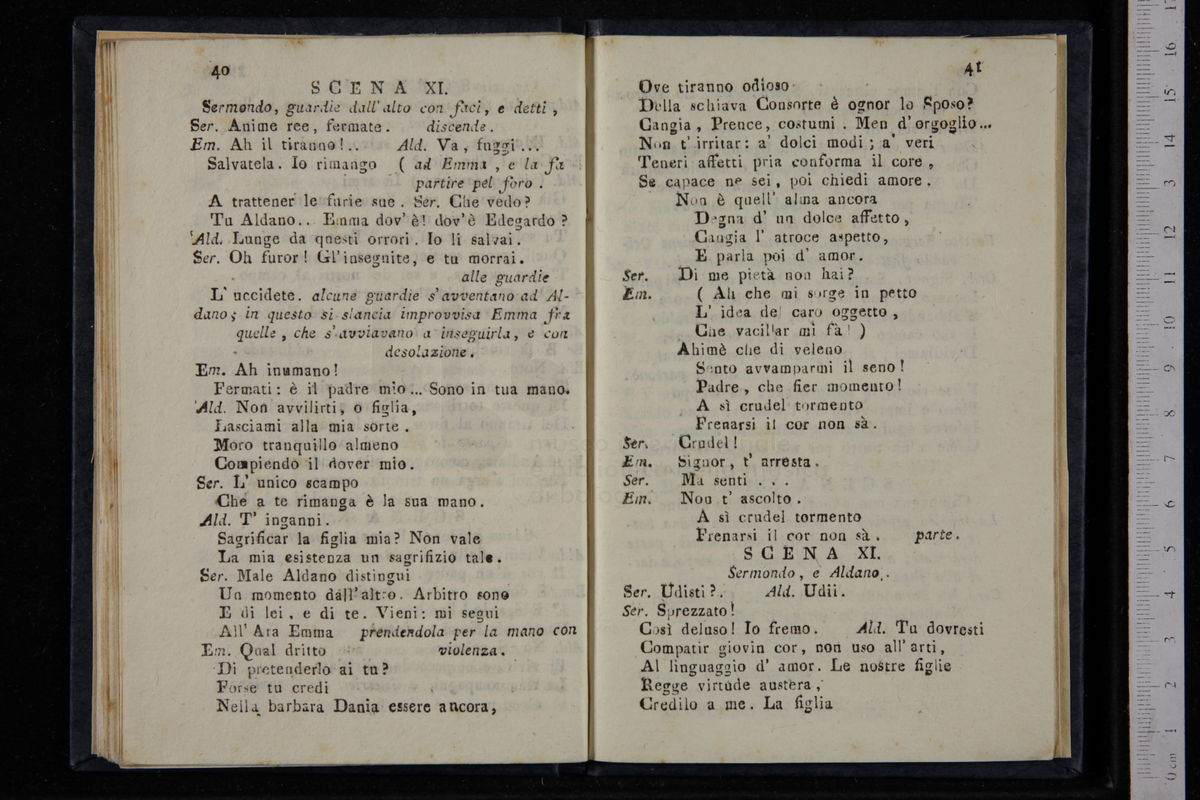 40
SCENA XI.
Sermondo, guardie dall' alto con faci, e detti,
Ser. Anime ree, fermate. discende.
Em. Ah il tiranno!.. Ald. Va, fuggi...
Salvatela. Io rimango ( ad Emma, e la fa
partire pel foro.
A trattener le furie sue. Ser. Che vedo?
Tu Aldano.. Emma dov' è! dov'è Edegardo?
Ald. Lunge da questi orrori. Io li salvai.
Ser. Oh furor! Gl'inseguite, e tu morrai.
alle guardie
L' uccidete. alcune guardie s' avventano ad Al-
dano; in questo si slancia improvvisa Emma fra
quelle, che s' avviavano a inseguirla, e con
desolazione.
Em. Ah inumano!
Fermati: è il padre mio... Sono in tua mano.
Ald. Non avvilirti, o figlia,
Lasciami alla mia sorte.
Moro tranquillo almeno
Compiendo il dover mio.
Ser. L' unico scampo
Che a te rimanga è la sua mano.
Ald. T' inganni.
Sagrificar la figlia mia? Non vale
La mia esistenza un sagrifizio tale.
Ser. Male Aldano distingui
Un momento dall'altro. Arbitro sono
E di lei, e di te. Vieni: mi segui
All' Ara Emma prendendola per la mano con
Em. Qual dritto violenza.
Di pretenderlo ai tu?
Forse tu credi
Nella barbara Dania essere ancora,
41
Ove tiranno odioso
Della schiava Consorte è ognor lo Sposo?
Cangia, Prence, costumi. Men d'orgoglio...
Non t' irritar: a' dolci modi; a' veri
Teneri affetti pria conforma il core,
Se capace ne sei, poi chiedi amore.
Non è quell' alma ancora
Degna d' un dolce affetto,
Cangia l' atroce aspetto,
E parla poi d' amor.
Ser. Di me pietà non hai?
Em. ( Ah che mi sorge in petto
L' idea del caro oggetto,
Che vacillar mi fà! )
Ahimè che di veleno
Sento avvamparmi il seno!
Padre, che fier momento!
A sì crudel tormento
Frenarsi il cor non sà.
Ser. Crudel!
Em. Signor, t' arresta.
Ser. Ma senti...
Em. Non t' ascolto.
A sì crudel tormento
Frenarsi il cor non sà. parte.
SCENA XI.
Sermondo, e Aldano.
Ser. Udisti?. Ald. Udii.
Ser. Sprezzato!
Così deluso! Io fremo. Ald. Tu dovresti
Compatir giovin cor, non uso all' arti,
Al linguaggio d' amor. Le nostre figlie
Regge virtude austera,
Credilo a me. La figlia
0 cm 1 2 3 4 5 6 7 8 9 10 11 12 13 14 15 16 17